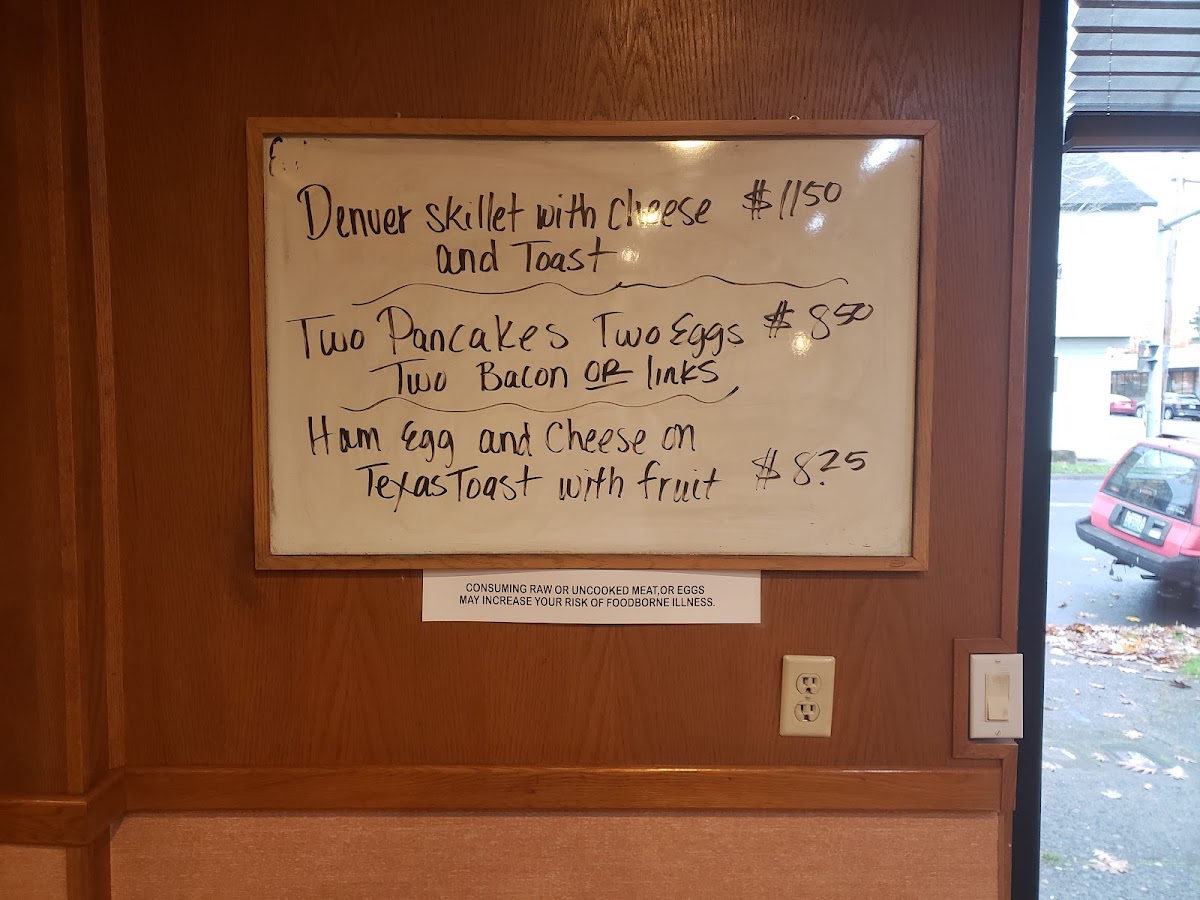 Denver skillet with cheese $1150
and Toast
Two Pancakes Two Eggs $850
Two Bacon OR links
Ham Egg and Cheese on
Texas Toast with fruit $8.25
CONSUMING RAW OR UNCOOKED MEAT,OR EGGS
MAY INCREASE YOUR RISK OF FOODBORNE ILLNESS.